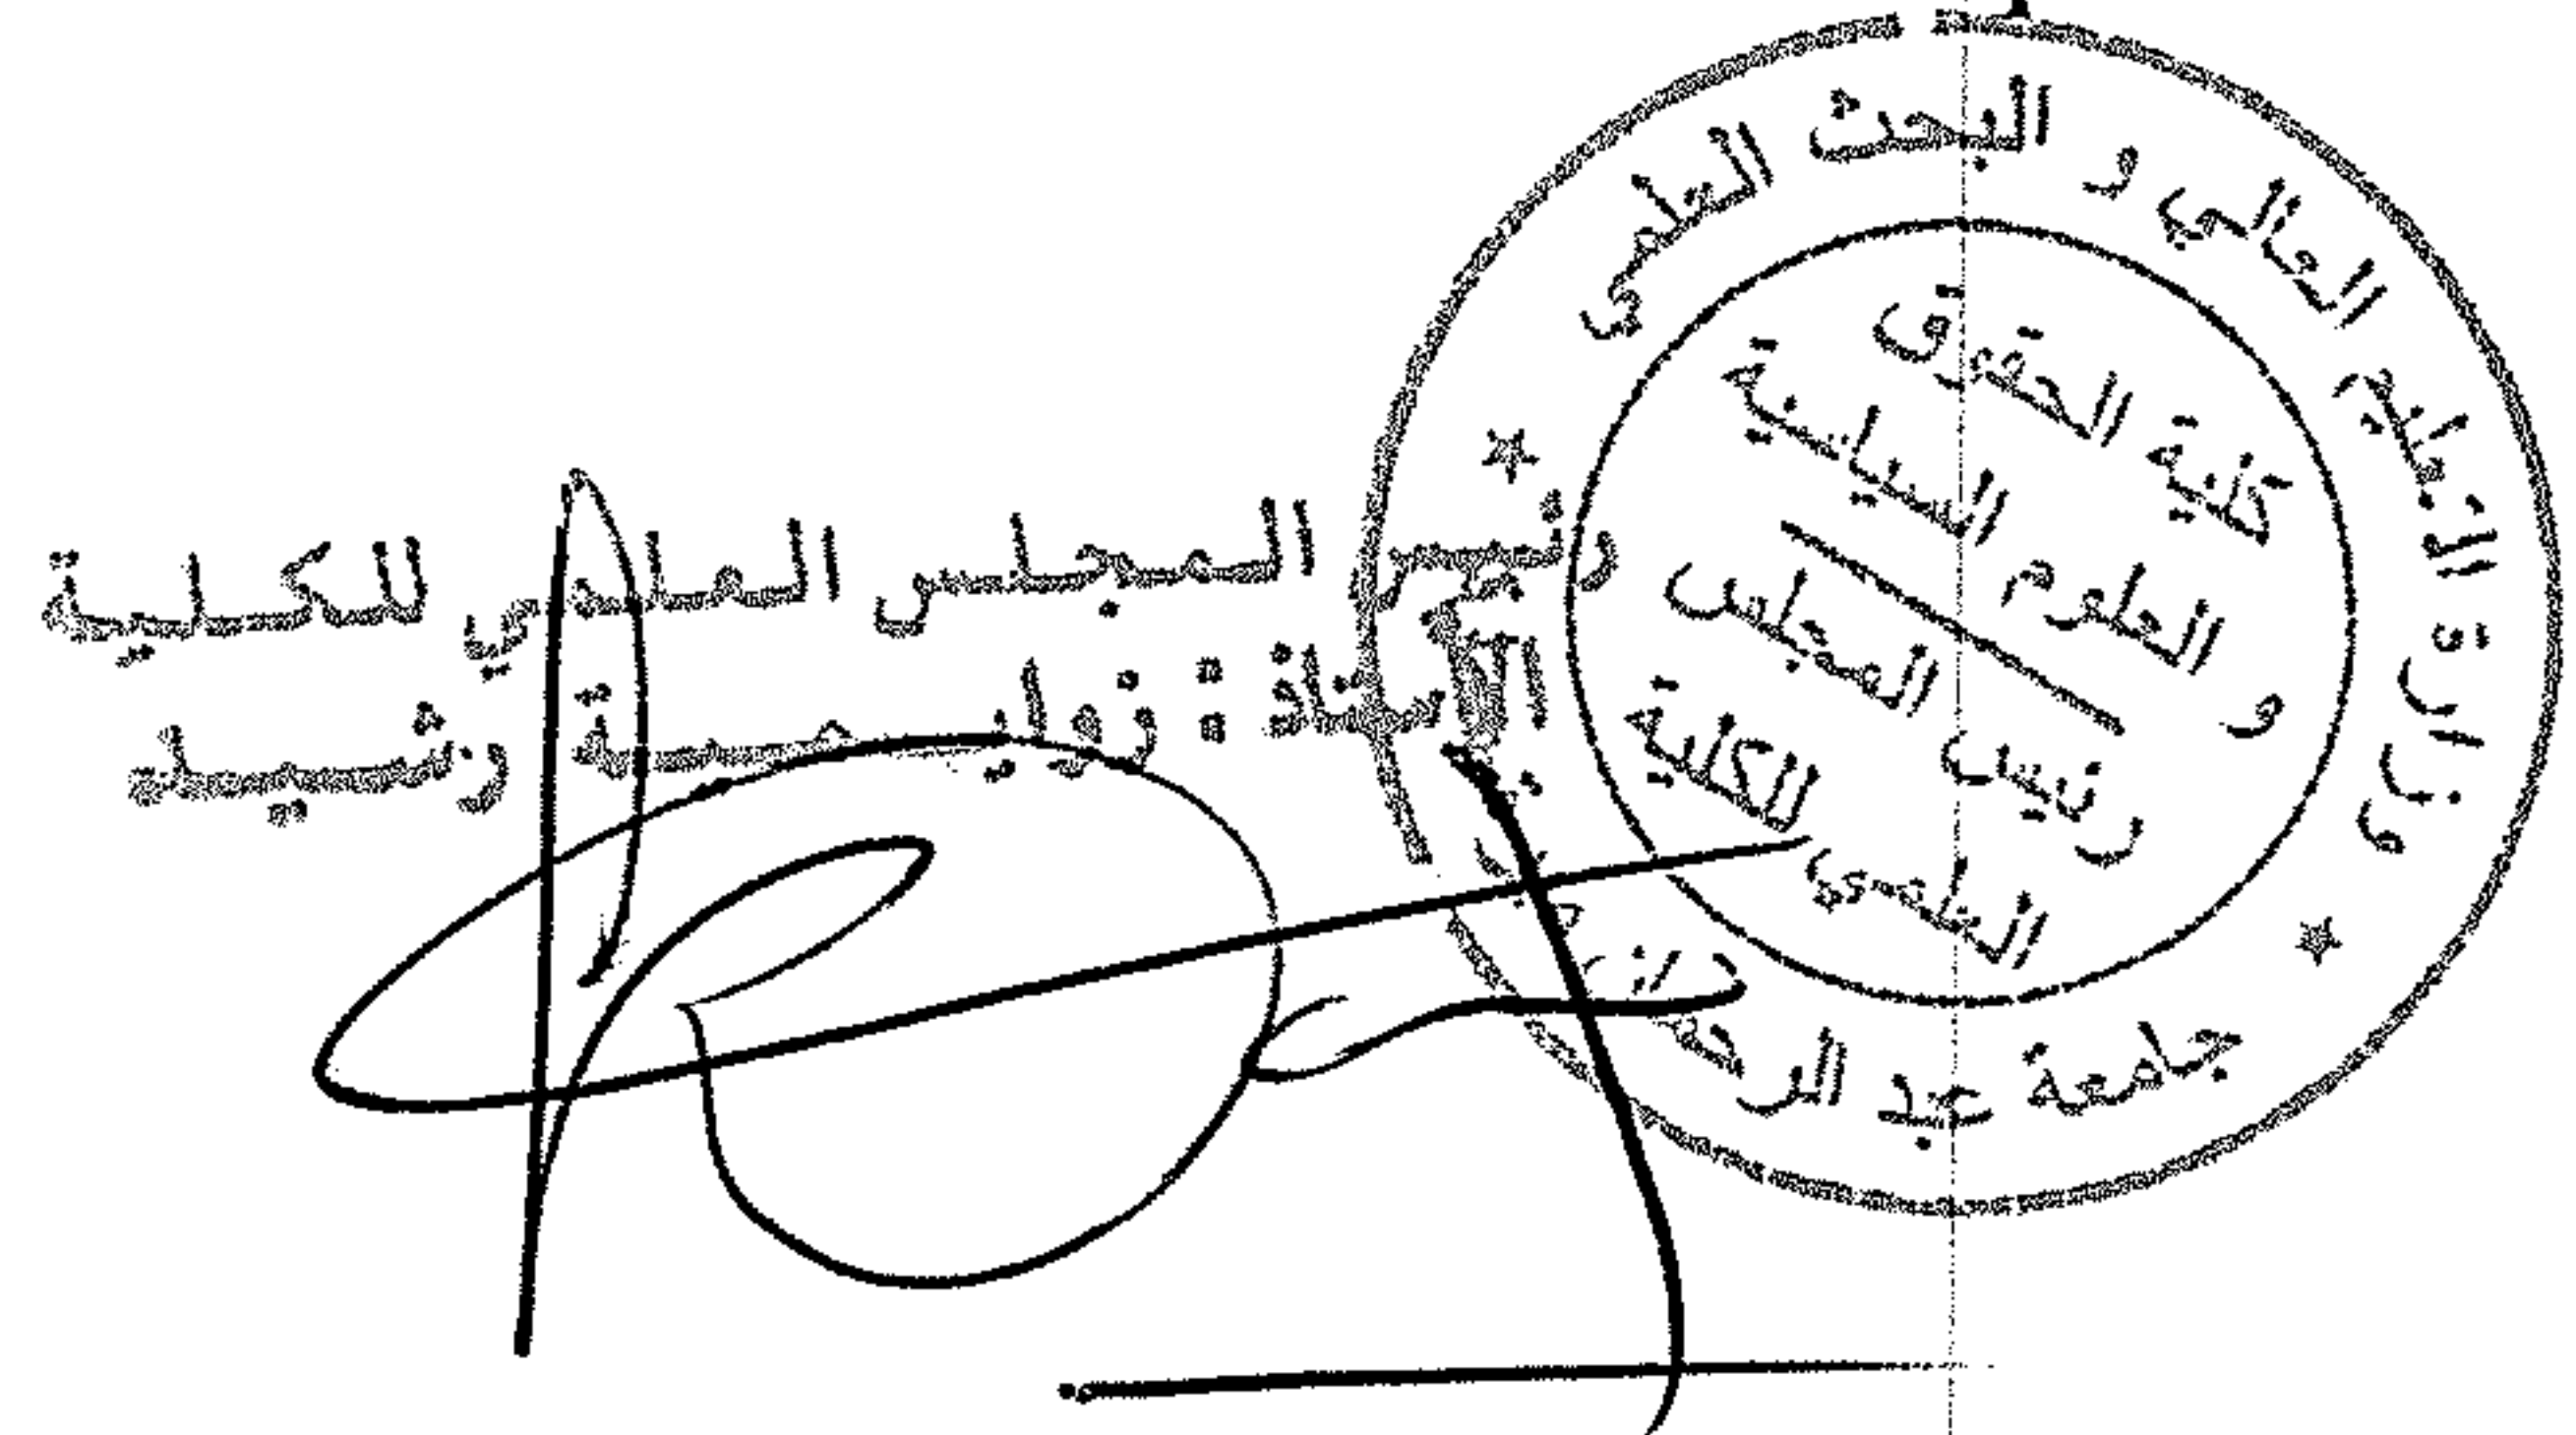 وزارة التعليم العالي و البحث العلمي
كلية الحقوق
و العلوم السياسية
رئيس المجلس
العلمي للكلية
جامعة عبد الرحمان
رئيس المجلس العلمي للكلية
الأستاذة : زوايمية رشيد